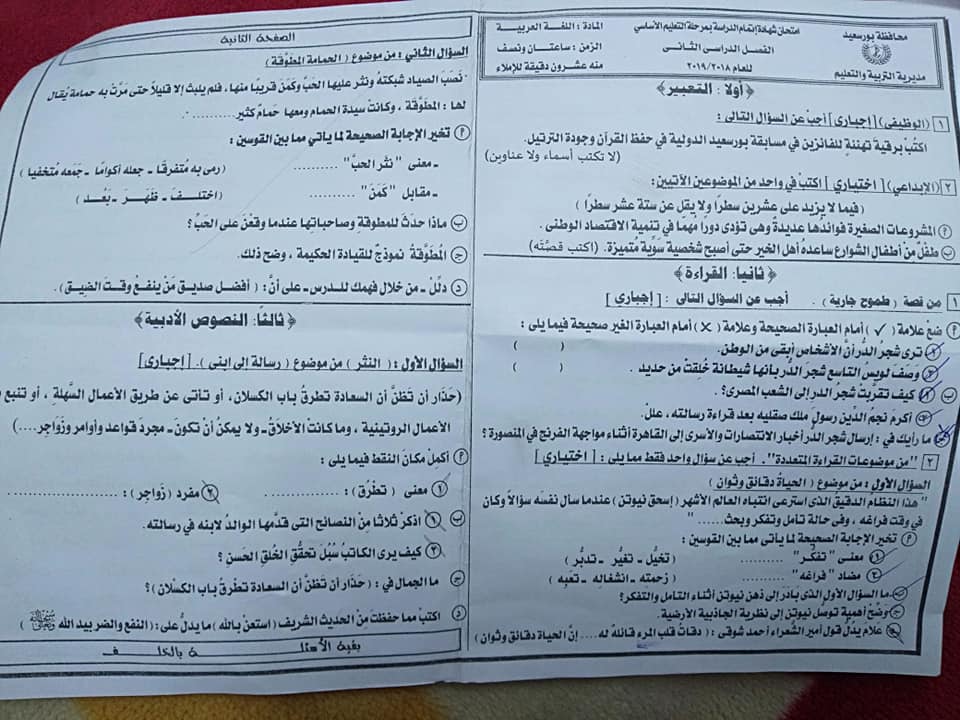 محافظة بورسعيد
مديرية التربية والتعليم
امتحان شهادة إتمام الدراسة بمرحلة التعليم الأساسي
الفصل الدراسى الثانى
للعام ٢٠١٩/٢٠١٨
المادة : اللغة العربية
الزمن : ساعتان ونصف
منه عشرون دقيقة للإملاء
﴿أولاً : التعبير﴾
١ (الوظيفى) [إجبارى] أجبْ عن السؤال التالى :
اكتُبْ برقية تهنئةٍ للفائزين في مسابقة بورسعيد الدولية في حفظ القرآن وجودة الترتيل.
(لا تكتب أسماء ولا عناوين)
٢ (الإبداعي) [اختياري] اكتبْ في واحد من الموضوعين الآتيين:
(فيما لا يزيد على عشرين سطرًا ولا يقل عن ستة عشر سطرًا)
أ) المشروعات الصغيرة فوائدها عديدةٌ وهى تؤدى دورًا مهمًا في تنمية الاقتصاد الوطنى.
ب) طفلٌ من أطفال الشوارع ساعدهُ أهل الخير حتى أصبح شخصية سَوِيَّة مُتميزة. (اكتب قصَّتَه)
﴿ثانيا: القراءة﴾
١ من قصة (طموح جارية) . أجب عن السؤال التالى : [إجباري]
أ) ضعْ علامة (✓) أمام العبارة الصحيحة وعلامة (✗) أمام العبارة الغير صحيحة فيما يلى :
١) ترى شجرُ الدُّر أنَّ الأشخاص أبقى من الوطن. ( )
٢) وَصَفَ لويس التاسع شجرَ الدُّر بأنها شيطانة خُلِقتْ من حديد. ( )
ب) ١) كيف تقربتْ شجرُ الدر إلى الشعب المصرى؟
٢) أكرمَ نجمُ الدِّين رسولَ ملك صقليه بعد قراءة رسالته ، علل.
ما رأيك في : إرسال شجر الدُّر أخبار الانتصارات والأسرى إلى القاهرة أثناء مواجهة الفرنج في المنصورة ؟
٢ "من موضوعات القراءة المتعددة". أجب عن سؤال واحد فقط مما يلى : [اختيارى]
السؤال الأول : من موضوع (الحياة دقائق وثوان)
" هذا النظام الدقيق الذى استرعى انتباه العالم الأشهر (إسحق نيوتن) عندما سأل نفسَه سؤالاً وكان
في وقت فراغه ، وفى حالة تأمل وتفكر وبحث....... "
أ) تخير الإجابة الصحيحة لما يأتى مما بين القوسين :
١) معنى "تفكُّر" .......... (تخيُّل ـ تغيُّر ـ تدبُّر)
٢) مضاد "فراغه" .......... (زحمته ـ انشغاله ـ تعبه)
ب) ما السؤال الأول الذى بَادَرَ إلى ذهن نيوتن أثناء التأمل والتفكر؟
ج) وَضِّحْ أهمية توصل نيوتن إلى نظرية الجاذبية الأرضية.
د) علامَ يدُلُّ قول أمير الشعراء أحمد شوقى : (دقاتُ قلب المرء قائلةٌ له.... إنَّ الحياة دقائق وثوان)
الصفحة الثانية
السؤال الثانى : من موضوع (الحمامة المطوَّقة)
"نَصَبَ الصيادُ شبكتهُ ونثر عليها الحَبَّ وكَمَنَ قريبًا منها، فلم يلبث إلا قليلاً حتى مرَّتْ به حمامة يُقال
لها : المطوّقة ، وكانتْ سيدة الحمام ومعها حمَامٌ كثير.........."
أ) تخير الإجابة الصحيحة لما يأتي مما بين القوسين :
ـ معنى "نثر الحبَّ" .......... (رمى به مُتفرقًا ـ جعله أكوامًا ـ جَمعَه مُتخفيا)
ـ مقابل "كَمَنَ" .......... (اختلف ـ ظَهَرَ ـ بَعُد)
ب) ماذا حدَثَ للمطوقة وصاحباتِها عندما وقعْنَ على الحَبِّ؟
ج) المُطوَّقةُ نموذجٌ للقيادة الحكيمة ، وضح ذلك.
د) دلِّلْ ـ من خلال فهمك للدرس ـ على أنَّ : (أفضل صديق مَنْ ينفعُ وقتَ الضِيق).
﴿ثالثًا: النصوص الأدبية﴾
السؤال الأول : (النثر) من موضوع (رسالة إلى ابنى). [إجبارى]
(حَذَار أن تَظُنَّ أن السعادة تطرقُ باب الكسلان، أو تأتى عن طريق الأعمال السَّهلةِ ، أو تنبع
الأعمال الروتينية ، وما كانت الأخلاقُ ـ ولا يمكنُ أنْ تكونَ ـ مجردَ قواعدَ وأوامر وزَواجِر....)
أ) أكمِلْ مكانَ النقط فيما يلى :
١) معنى (تطرُق) : .............. ٢) مفرد (زَواجِر) : ..............
ب) ١) اذكرْ ثلاثًا مِنْ النصائح التى قدَّمها الوالدُ لابنه في رسالته.
٢) كيف يرى الكاتبُ سُبُلَ تحقُّق الخُلقِ الحسن ؟
ج) ما الجمال في : (حَذَار أن تَظُنَّ أن السعادة تطرقُ باب الكسْلان)؟
د) اكتبْ مما حفظتَ مِنْ الحديث الشريف (استعنْ بالله) ما يدلُّ على : (النفع والضر بيد الله ﷻ)
بقية الأسئلـــــة بالخلـــف